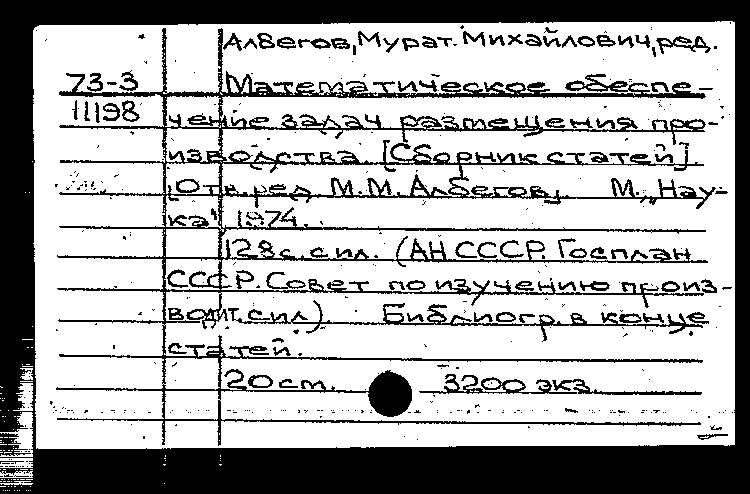 Албегов, Мурат Михайлович, ред.
73-3 Математическое обеспе-
11198 чение задач размещения про-
изводства. [Сборник статей].
[Отв. ред. М.М. Албегов]. М., „Нау-
ка", 1974.
128 с. с ил. (АН СССР. Госплан
СССР. Совет по изучению произ-
водит. сил). Библиогр. в конце
статей.
20 см. 3200 экз.